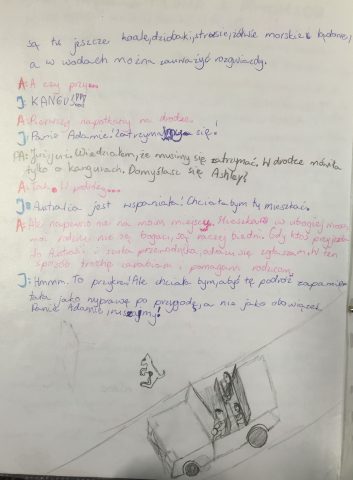 są tu jeszcze koale, dziobaki, strusie, żółwie morskie i
a w wodach można zauważyć rozgwiazdy.
A: A czy przy...
J: KANGU
A: Pierwszy napotkany na drodze.
J: Panie Adamie! Zatrzymajmy się!
PA: Już, już. Wiedziałem, że musimy się zatrzymać. W drodze mówiła
tylko o kangurach. Domyślasz się Ashley?
A: Tak. W podróży...
J: Australia jest wspaniała! Chciałabym tu mieszkać.
A: Ale napewno nie na moim miejscu. Mieszkam w ubogiej
moi rodzice nie są bogaci, są raczej biedni. Gdy ktoś przyjeżdża
do Australii i szuka przewodnika, ja się zgłaszam. W ten
sposób trochę zarabiam i pomagam rodzicom.
J: Hmmm. To przykre! Ale chciałabym, abyś tę podróż
jako wyprawę po przygodę, a nie jako obowiązek.
Panie Adamie, ruszajmy!